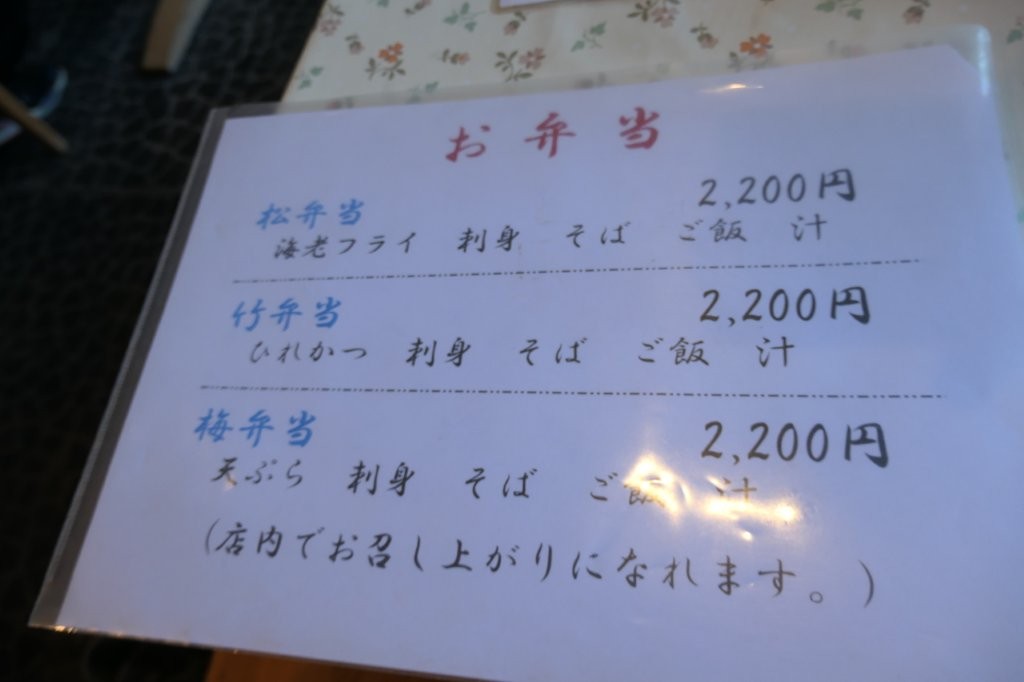 お弁当
松弁当 2,200円
海老フライ 刺身 そば ご飯 汁
竹弁当 2,200円
ひれかつ 刺身 そば ご飯 汁
梅弁当 2,200円
天ぷら 刺身 そば ご飯 汁
(店内でお召し上がりになれます。)